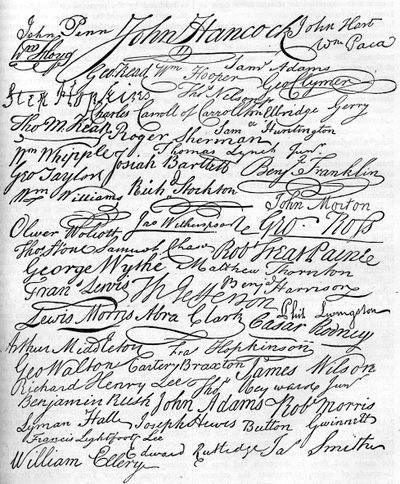 John Penn John Hancock John Hart
Wm Floyd Wm Paca
Geo Read Wm Hooper Saml Adams
Geo Clymer
Step Hopkins Thos Nelson jr
Charles Carroll of Carrollton Elbridge Gerry
Tho M:Kean Roger Sherman Saml Huntington
Wm Whipple Thomas Lynch Junr
Josiah Bartlett Benj Franklin
Geo Taylor Richd Stockton
Wm Williams John Morton
Oliver Wolcott Jno Witherspoon Geo. Ross
Thos Stone Samuel Chase Robt Treat Paine
George Wythe Matthew Thornton
Frans Lewis Th Jefferson Benj Harrison
Lewis Morris Abra Clark Phil Livingston
Caesar Rodney
Arthur Middleton Fras Hopkinson
Geo Walton Carter Braxton James Wilson
Richard Henry Lee Thos Heyward Junr
Benjamin Rush John Adams Robt Morris
Lyman Hall Joseph Hewes Button Gwinnett
Francis Lightfoot Lee
William Ellery Edward Rutledge Jas Smith